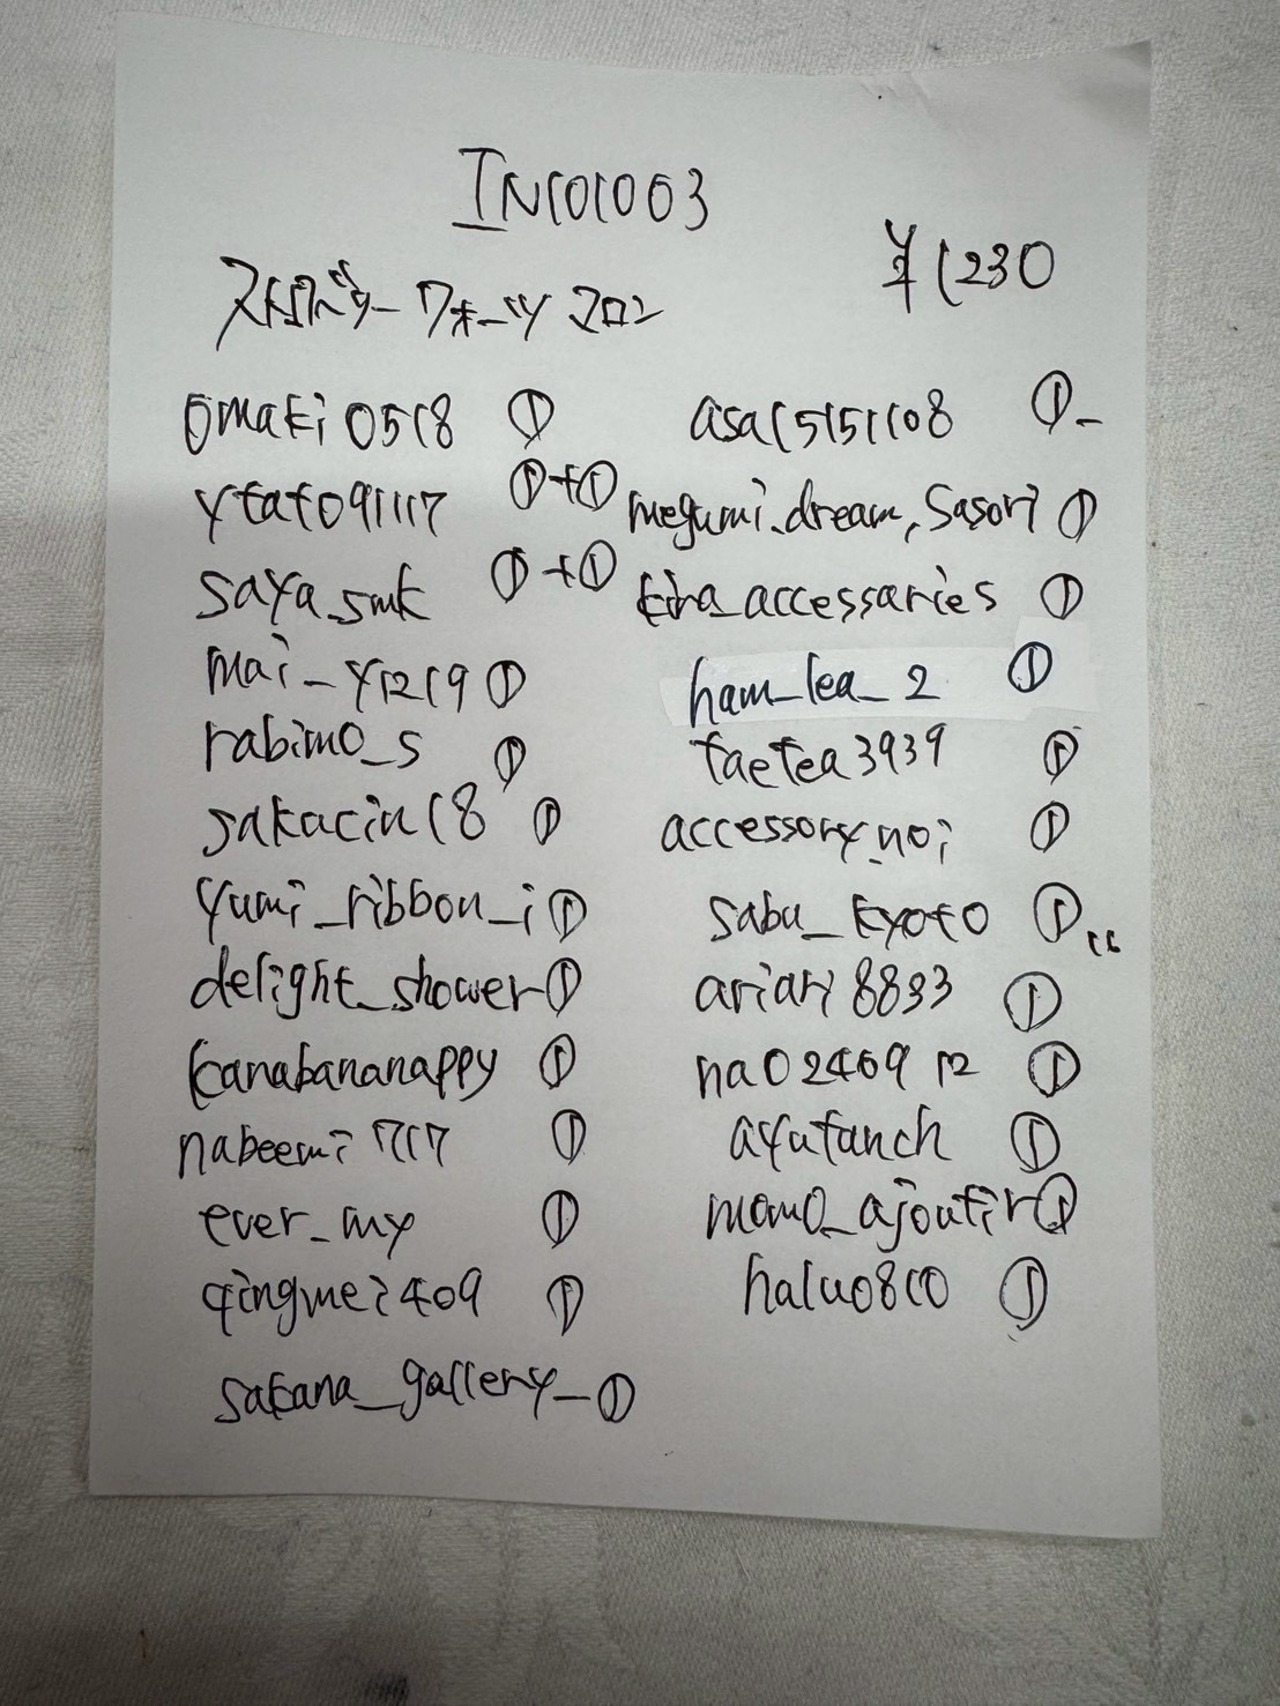 IN101003
ストロベリークォーツ マロン
¥1230
omaki0518 ①
ytat091117 ①+①
saya_smk ①+①
mai_y1219 ①
rabimo_s ①
sakacin18 ①
yumi_ribbon_i ①
delight_shower ①
kanabananappy ①
nabeemi717 ①
ever_my ①
qingmei409 ①
sakana_gallery_ ①
asa151511108 ①
megumi.dream.sasori ①
kira_accessaries ①
ham_lea_2 ①
taetea3939 ①
accessory_noi ①
sabu_kyoto ①
ariari8833 ①
nao246912 ①
ayutanch ①
momo_ajoutir ①
halu0810 ①